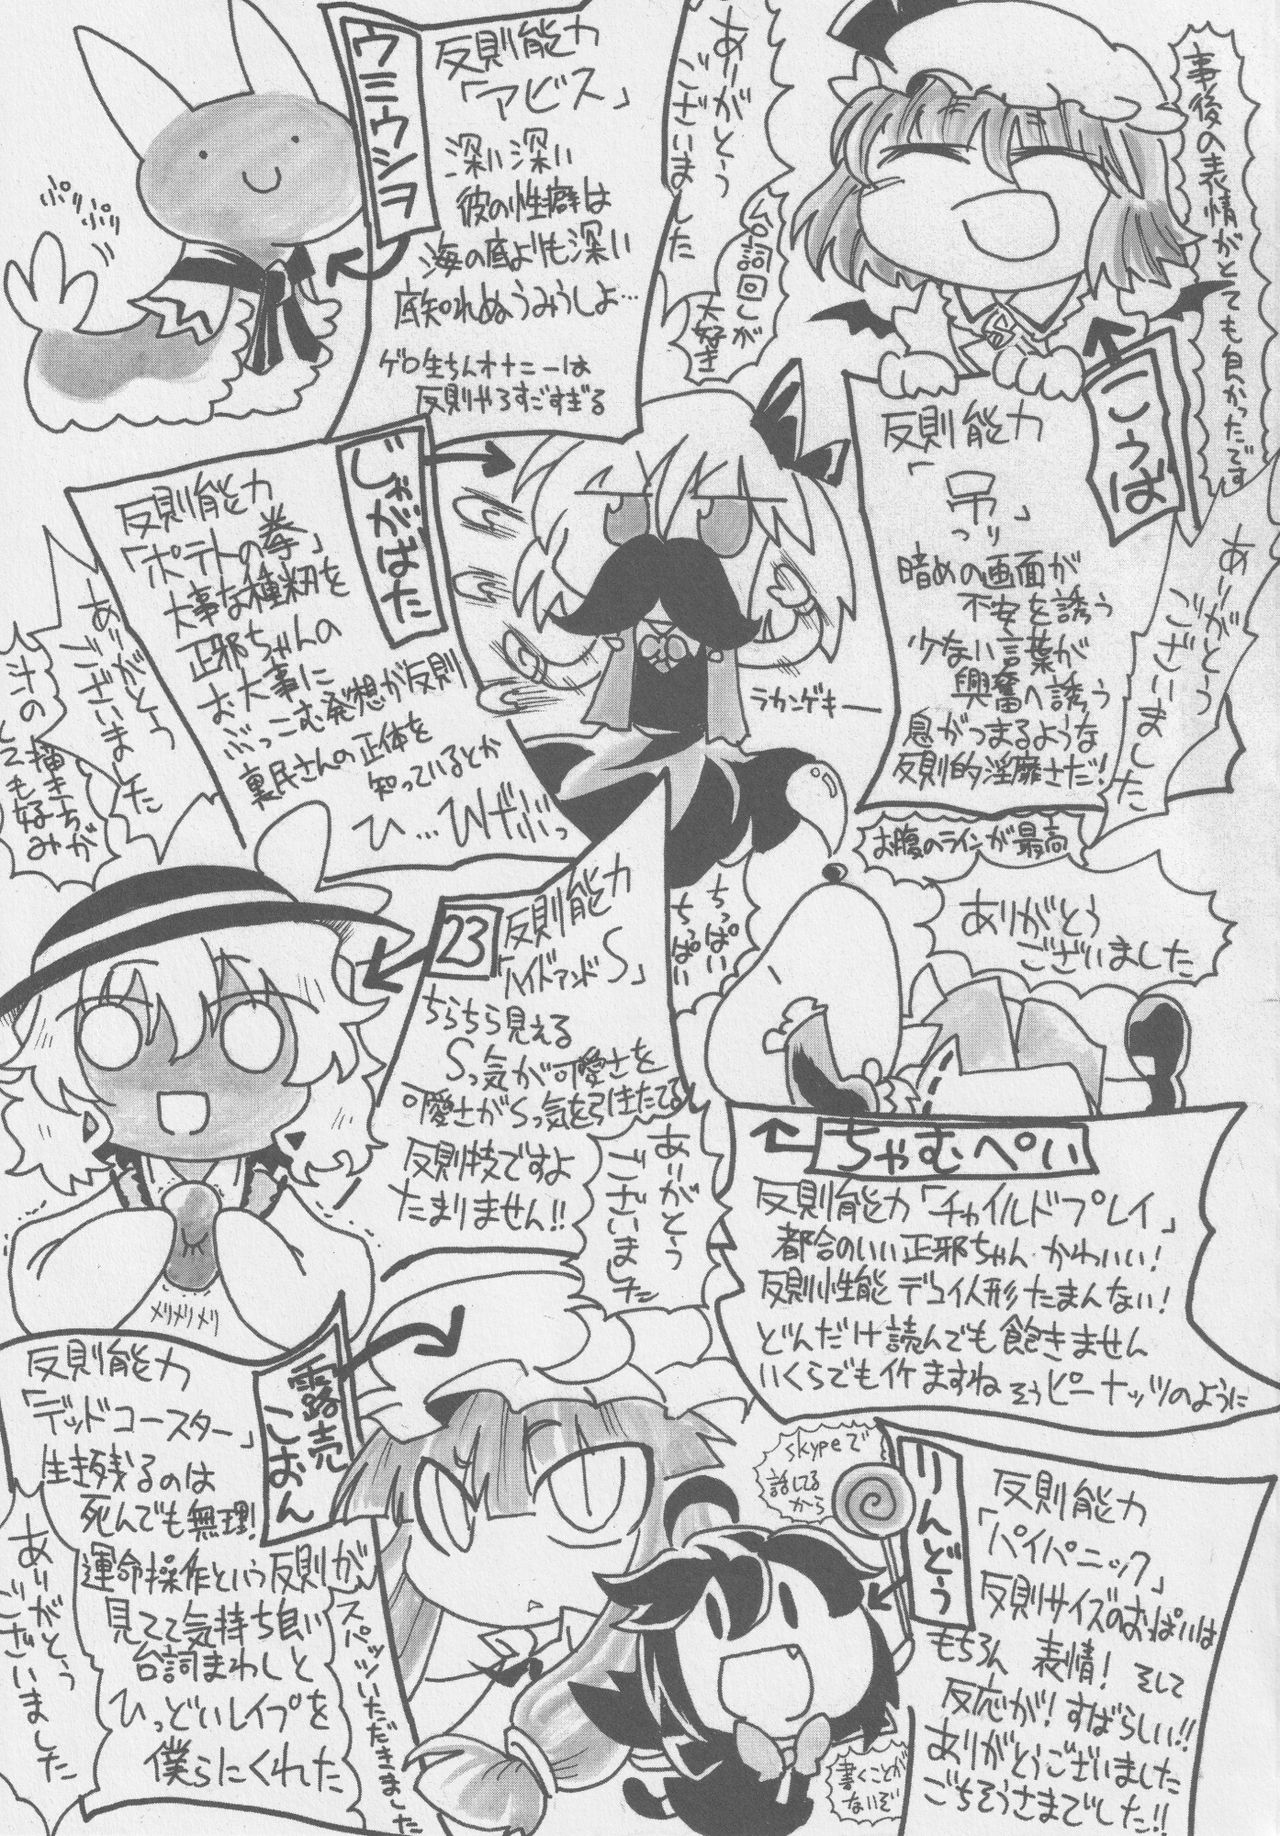 事後の表情がとても良かったです
ありがとう
ございました
こうば
反則能力
「吊」
つり
暗めの画面が
不安を誘う
少ない言葉が
興奮へ誘う
息がつまるような
反則的淫靡さだ!
お腹のラインが最高
ありがとう
ございました
台詞回しが
大好き
ウミウシヲ
反則能力
「アビス」
深い深い
彼の性癖は
海の底よりも深い
底知れぬうみうしよ…
ゲロ生ちんオナニーは
反則やろすごすぎる
ぷりぷり
じゃがばた
反則能力
「ポテトの拳」
大事な種籾を
正邪ちゃんの
お大事に
ぶっこむ発想が反則
裏民さんの正体を
知っているとか
ひ…ひでぶっ
ラカンゲキー
ありがとう
ございました
汁の
描き方が
とても好み
ちっぱい
ちっぱい
ありがとう
ございました
ちゃむぺい
反則能力「チャイルドプレイ」
都合のいい正邪ちゃんかわいい!
反則性能デコイ人形たまんない!
どんだけ読んでも飽きません
いくらでもイケますね そうピーナッツのように
23
反則能力
「ハイドアンドS」
ちらちら見える
Sっ気が可愛さを
可愛さがSっ気を引きたてる
反則技ですよ
たまりません!!
ありがとう
ございました
メリメリメリ
露路売
こおん
反則能力
「デッドコースター」
生き残るのは
死んでも無理!
運命操作という反則が
見てて気持ち良い
台詞まわしと
ひっどいレイプを
僕らにくれた
ありがとう
ございました
スパッツいただきました
りんどう
反則能力
「パイパニック」
反則サイズのおっぱいは
もちろん 表情! そして
反応が! すばらしい!!
ありがとうございました
ごちそうさまでした!!
skypeで
話してる
から
書くことが
ないぞ